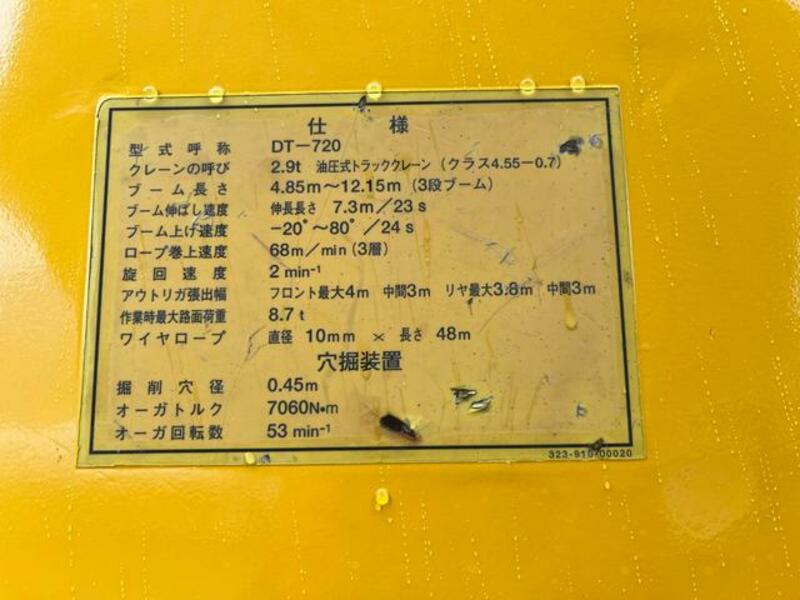 仕 様
型式呼称 DT-720
クレーンの呼び 2.9t 油圧式トラッククレーン (クラス4.55-0.7)
ブーム長さ 4.85m〜12.15m (3段ブーム)
ブーム伸ばし速度 伸長長さ 7.3m/23s
ブーム上げ速度 -20°〜80°/24s
ロープ巻上速度 68m/min (3層)
旋回速度 2 min⁻¹
アウトリガ張出幅 フロント最大4m 中間3m リヤ最大3.8m 中間3m
作業時最大路面荷重 8.7t
ワイヤロープ 直径 10mm × 長さ 48m
穴掘装置
掘削穴径 0.45m
オーガトルク 7060N•m
オーガ回転数 53 min⁻¹
323-910-00020